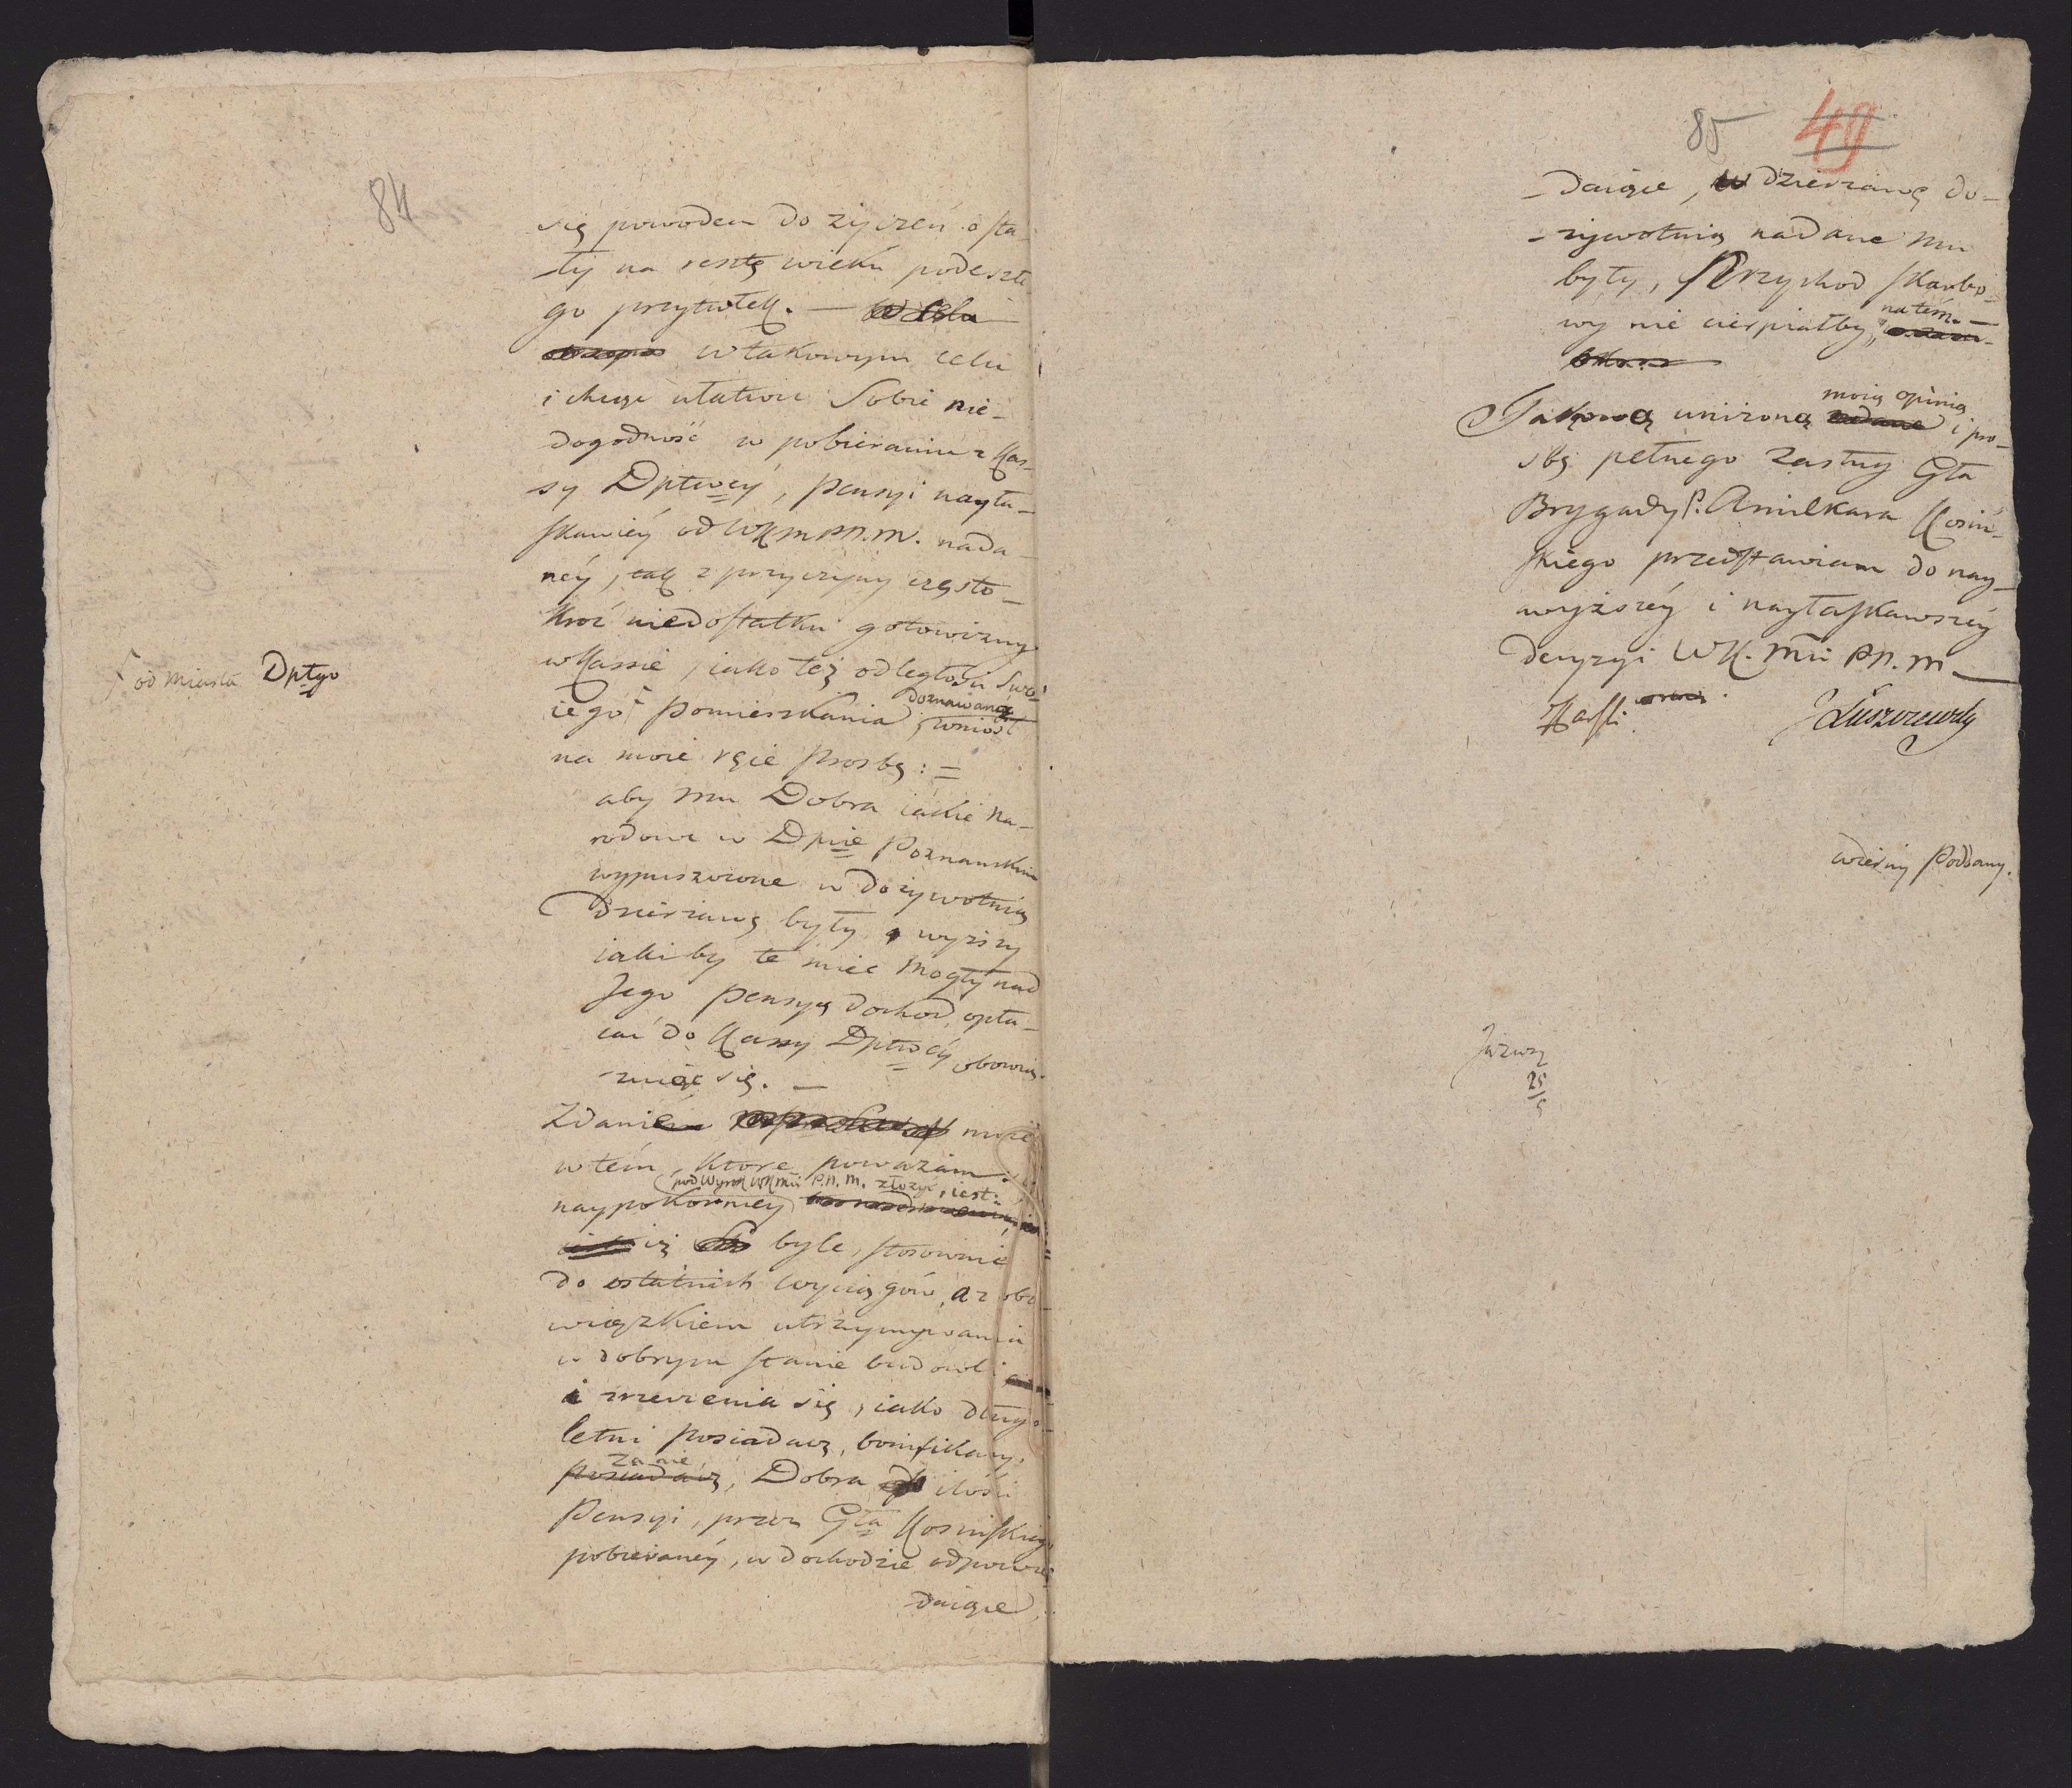 84
się powodem do życzeń o sta-
ły na resztę wieku podeszłe
go przytułek. —
w takowym celu
i chcąc ułatwić Sobie nie-
dogodność w pobieraniu z Kas-
sy Dptwey, pensyi nayła-
skawiéy od WKM PN. M. nada-
néy, tak z przyczyny często-
kroć niedostatku gotowizny
w Kassie, iako też odległości Swo-
iego pomieszkania doznawaną, wniósł
od miasta Dptgo
na moie ręce prosbę: =
aby mu Dobra iakie Na-
rodowe w Dpcie Poznanskim
wypuszczone w dożywotnią
Dzierżawę były, wyższy
iaki by te mieć mogły nad
Jego pensyą dochod, opła-
cać do Kassy Dptwéy obowią-
zuiąc się. —
Zdanie moie
w tém, które poważam
naypokorniey pod Wyrok WKMci P.N.M. złożyć, iest:
iż byle, stosownie
do ostatnich wyciągów, a z obo-
wiązkiem utrzymywania
w dobrym stanie budowli
i zrzeczenia się, iako długo-
letni posiadacz, bonifikacyi
za nie, Dobra ilości
Pensyi, przez Gła Kosinskiego
pobieranéy, w dochodzie odpowia-
daiące
85 49
- daiące, w dzierzawę do-
- żywotnią nadane mu
były, Przychod skarbo-
wy nie cierpiałby na tém. —
Takową uniżoną moią opinią i pro-
sbę pełnego zasług Gła
Brygady P. Amilkara Kosiń-
skiego przedstawiam do nay-
wyższéy i nayłaskawszéy
decyzyi WK. Mci PN. M —
Łuszczewsky
wierny Poddany.
25